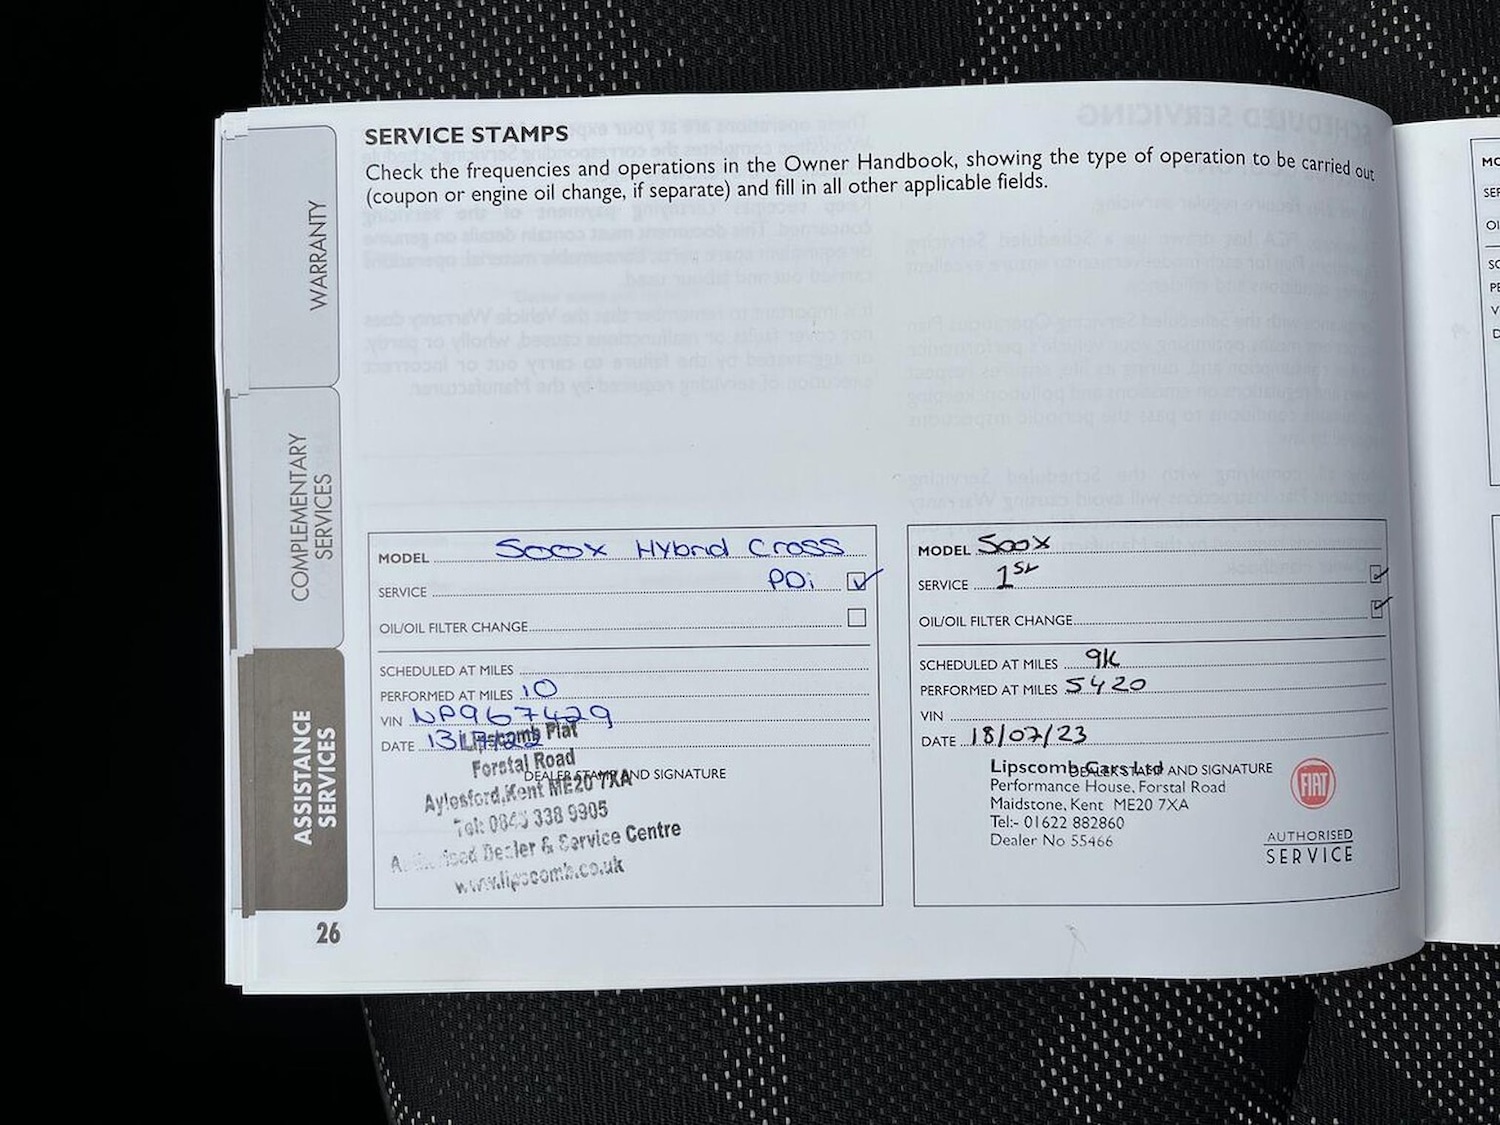 SERVICE STAMPS
Check the frequencies and operations in the Owner Handbook, showing the type of operation to be carried out
(coupon or engine oil change, if separate) and fill in all other applicable fields.
WARRANTY
COMPLEMENTARY
SERVICES
ASSISTANCE
SERVICES
MODEL 500X HYBRID CROSS
SERVICE PDi
OIL/OIL FILTER CHANGE
SCHEDULED AT MILES
PERFORMED AT MILES 10
VIN NP967429
DATE
DEALER STAMP AND SIGNATURE
Lipscomb Fiat
Forstal Road
Aylesford, Kent ME20 7XA
Tel: 0845 338 9905
Authorised Dealer & Service Centre
www.lipscomb.co.uk
MODEL 500X
SERVICE 1st
OIL/OIL FILTER CHANGE
SCHEDULED AT MILES 9K
PERFORMED AT MILES 5420
VIN
DATE 18/07/23
DEALER STAMP AND SIGNATURE
Lipscomb Cars Ltd
Performance House, Forstal Road
Maidstone, Kent ME20 7XA
Tel:- 01622 882860
Dealer No 55466
FIAT
AUTHORISED
SERVICE
26